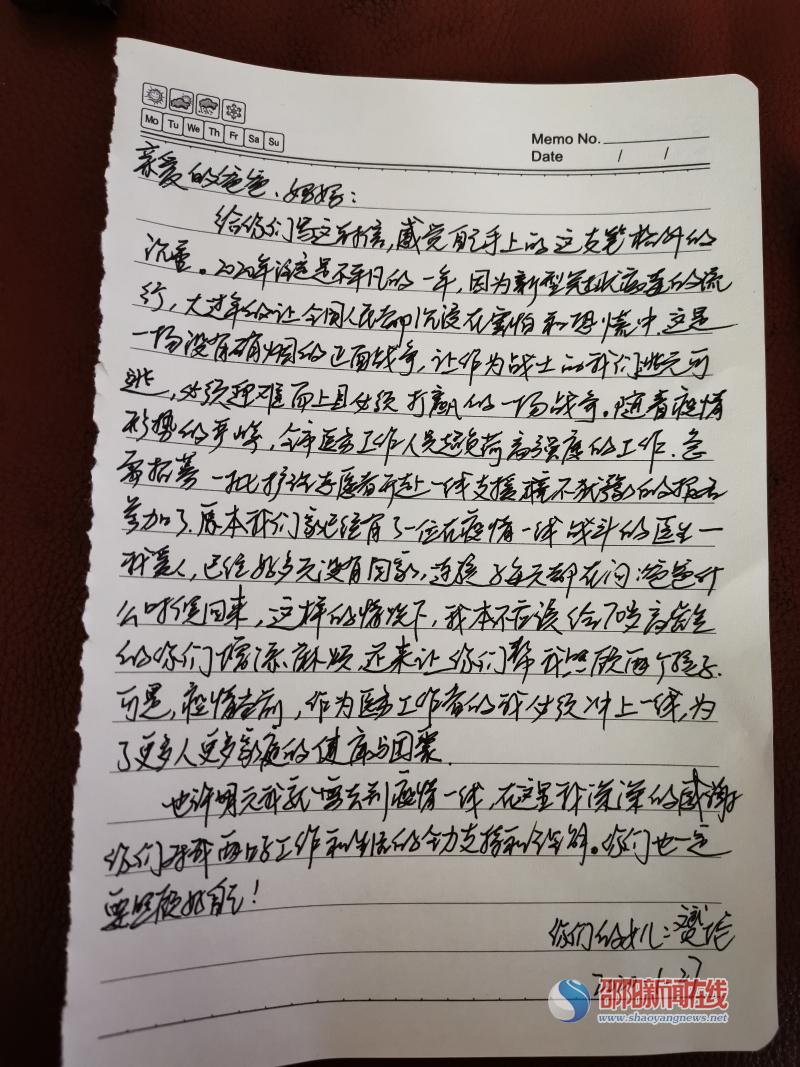 Mo Tu We Th Fr Sa Su
Memo No.
Date / /
亲爱的爸爸、妈妈：
给你们写这封信，感觉自己手上的这支笔格外的
沉重。2020年注定是不平凡的一年，因为新型冠状病毒的流
行，大过年的让全国人民都沉浸在害怕和恐慌中，这是
一场没有硝烟的正面战争，让作为战士的我们无可
逃，必须迎难而上且必须打赢的一场战争。随着疫情
形势的严峻，全市医务工作人员超负荷高强度的工作，急
需招募一批护治患者奔赴一线支援，我不犹豫的报名
参加了。原本我们家已经有了一位在疫情一线战斗的医生一
我爱人，已经好多天没有回家，连孩子每天都在问：爸爸什
么时候回来，这样的情况下，我本不应该给70岁高龄
的你们增添麻烦，还来让你们帮我照顾两个孩子。
可是，疫情当前，作为医务工作者的我必须冲上一线，为
了更多人更多家庭的健康与团聚。
也许明天我就要去到疫情一线，在这里我深深的感谢
你们对我两口子工作和生活的全力支持和。你们也一定
要照顾好自己！
你们的女儿：
2020.1.27
邵阳新闻在线
www.shaoyangnews.net